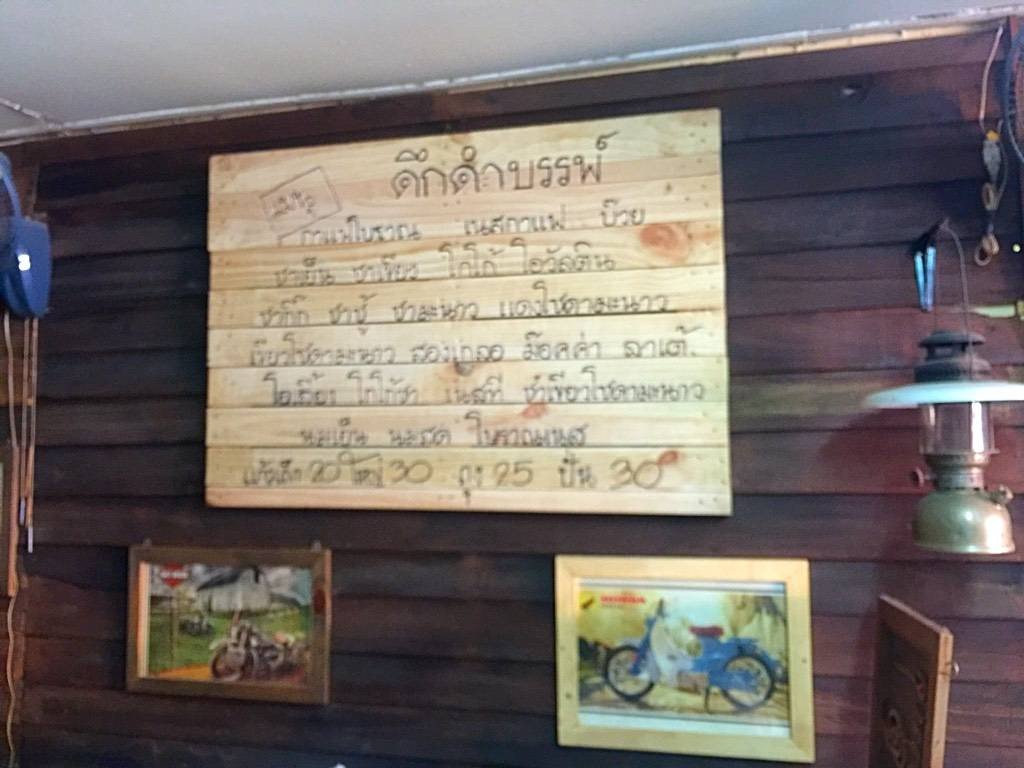 ดึกดำบรรพ์
เมนู
กาแฟโบราณ เนสกาแฟ บ๊วย
ชาเย็น ชาเขียว โกโก้ โอวัลติน
ชากิ๊ก ชาชู้ ชามะนาว แดงโซดามะนาว
เขียวโซดามะนาว สองเกลอ ม๊อคค่า ลาเต้
โอเลี้ยง โกโก้ชา เนสที ชาเขียวโซดามะนาว
นมเย็น นมสด โบราณเนส
แก้วเล็ก 20 ใหญ่ 30 ถุง 25 ปั่น 30
HONDA